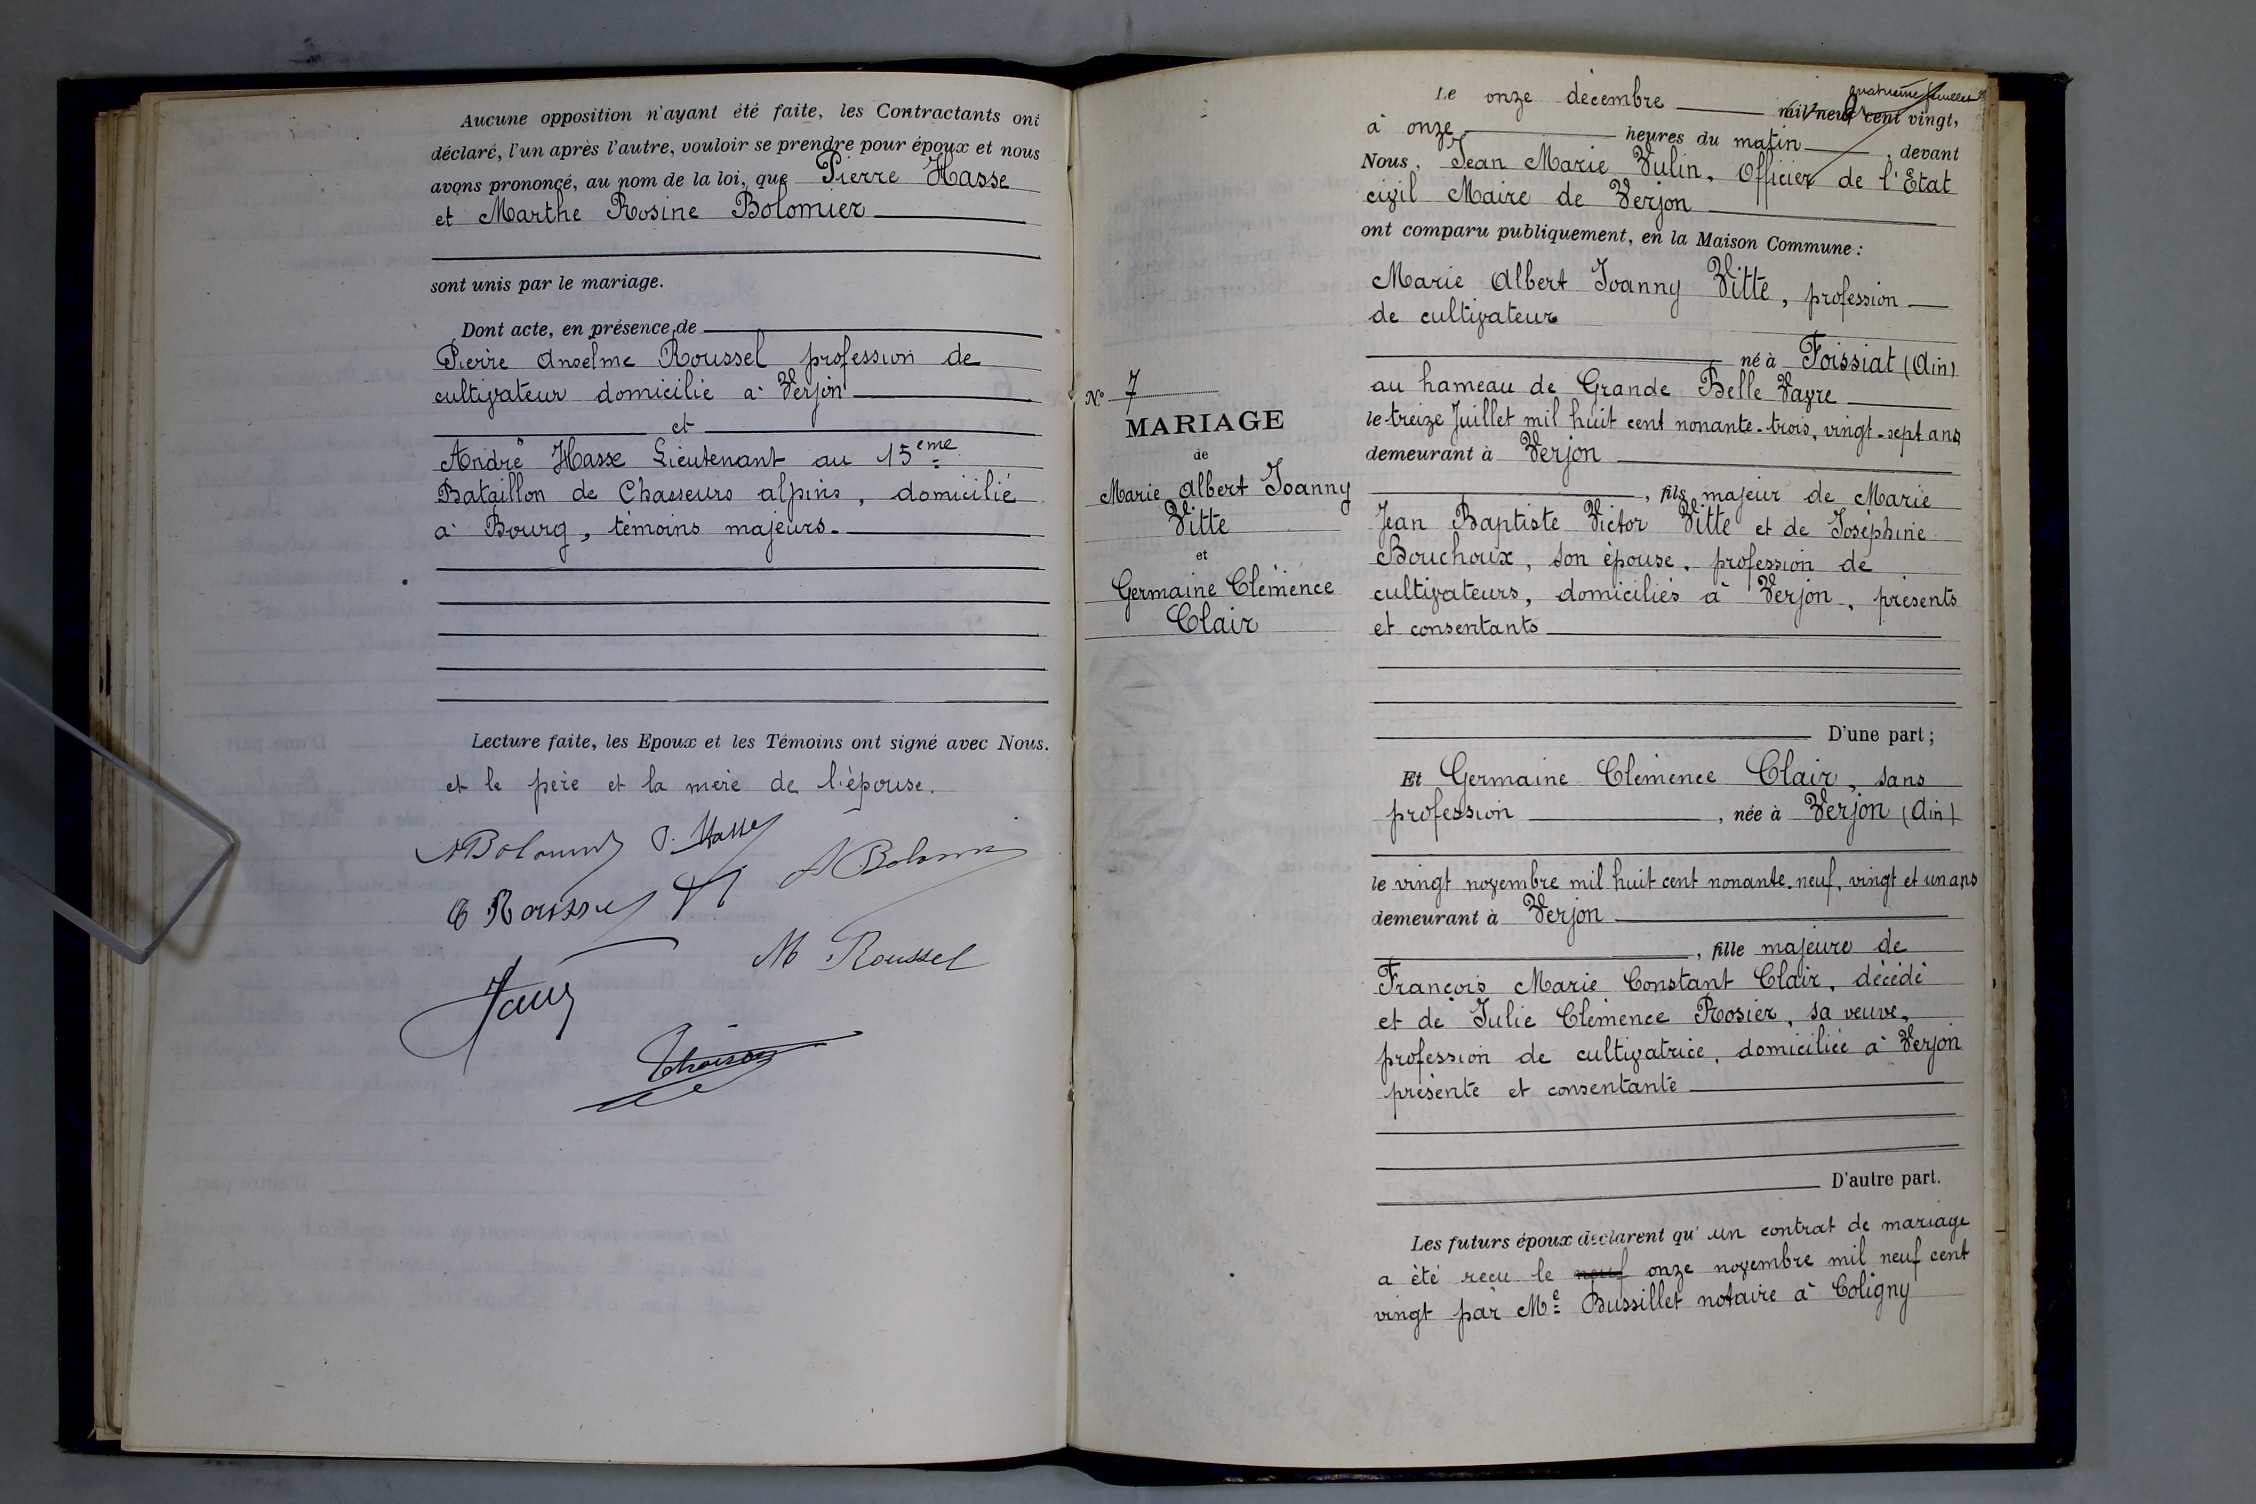 Aucune opposition n'ayant été faite, les Contractants ont
déclaré, l'un après l'autre, vouloir se prendre pour époux et nous
avons prononcé, au nom de la loi, que Pierre Hasse
et Marthe Rosine Bolomier
sont unis par le mariage.
Dont acte, en présence de
Pierre Anselme Roussel profession de
cultivateur domicilié à Verjon
et
André Hasse Lieutenant au 15eme
Bataillon de Chasseurs alpins, domicilié
à Bourg, témoins majeurs.
Lecture faite, les Epoux et les Témoins ont signé avec Nous.
et le père et la mère de l'épouse.
P. Hasse
M Roussel
quatrième feuillet
Le onze décembre mil neuf cent vingt,
à onze heures du matin, devant
Nous, Jean Marie Vulin, Officier de l'Etat
civil Maire de Verjon
ont comparu publiquement, en la Maison Commune :
Marie Albert Joanny Vitte, profession
de cultivateur
né à Foissiat (Ain)
au hameau de Grande Belle Vavre
le treize Juillet mil huit cent nonante-trois, vingt-sept ans
demeurant à Verjon
, fils majeur de Marie
Jean Baptiste Victor Vitte et de Joséphine
Bouchoux, son épouse, profession de
cultivateurs, domiciliés à Verjon, présents
et consentants
D'une part ;
N° 7
MARIAGE
de
Marie Albert Joanny
Vitte
et
Germaine Clémence
Clair
Et Germaine Clémence Clair, sans
profession, née à Verjon (Ain)
le vingt novembre mil huit cent nonante-neuf, vingt et un ans
demeurant à Verjon
, fille majeure de
François Marie Constant Clair, décédé
et de Julie Clémence Rosier, sa veuve,
profession de cultivatrice, domiciliée à Verjon
présente et consentante
D'autre part.
Les futurs époux déclarent qu'un contrat de mariage
a été reçu le neuf onze novembre mil neuf cent
vingt par Me Bussillet notaire à Coligny